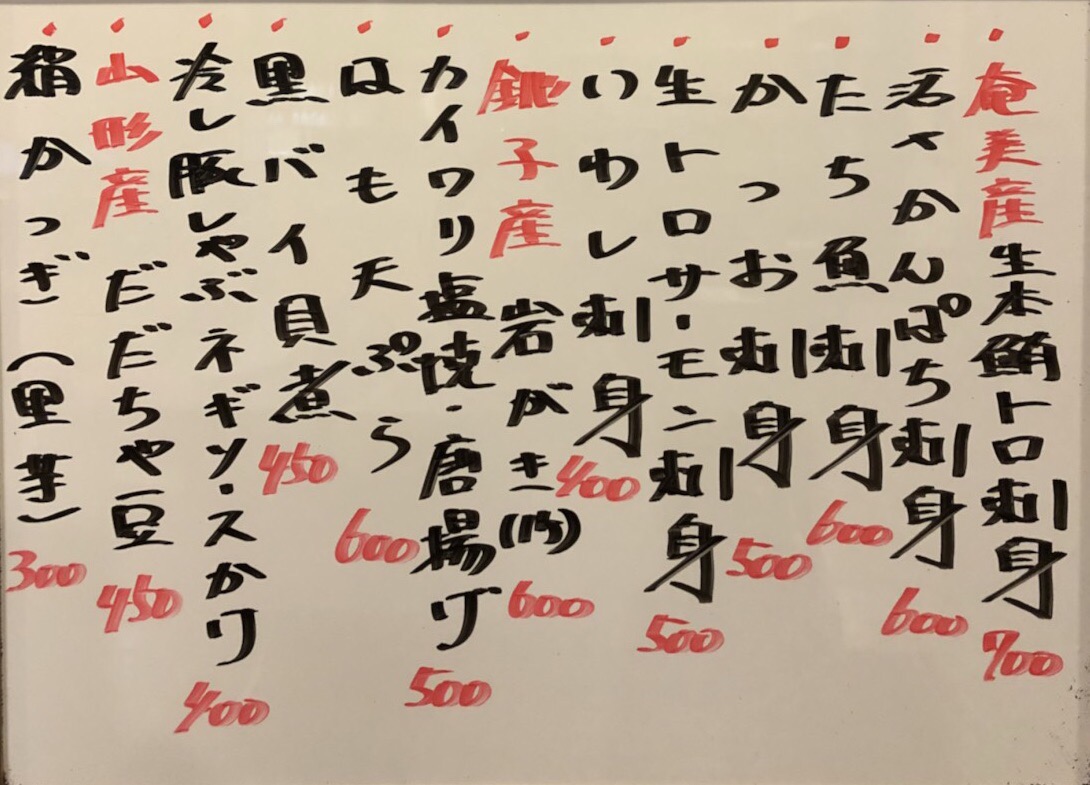 奄美産生本鮪トロ刺身 700
活〆かんぱち刺身 600
たち魚刺身 600
かつお刺身 500
生トロサーモン刺身 500
いわし刺身 400
銚子産 岩がき(1ヶ) 600
カイワリ塩焼・唐揚げ 500
はも天ぷら 600
黒バイ貝煮 450
冷し豚しゃぶネギソースかけ 400
山形産 だだちゃ豆 450
絹かつぎ(里芋) 300